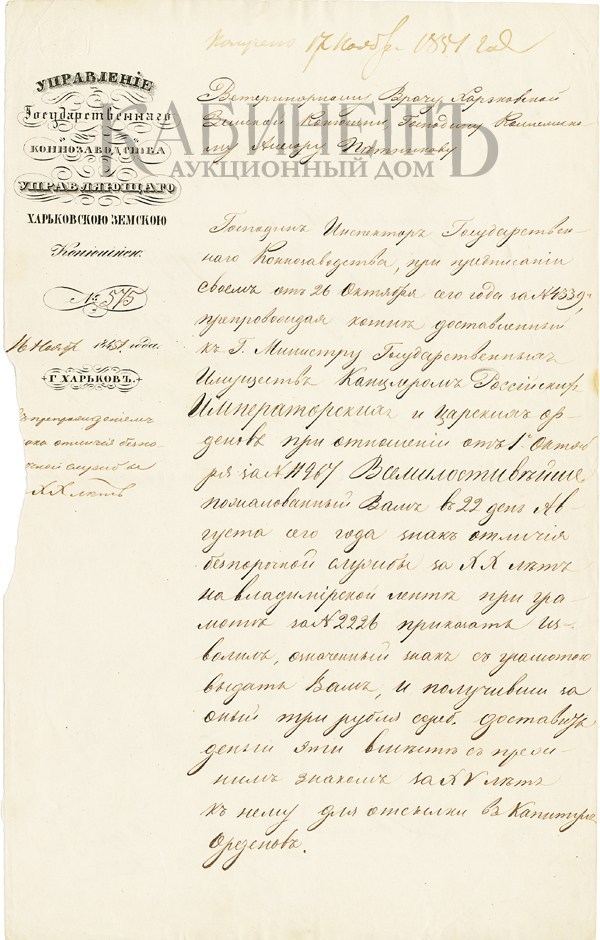 17 Ноябр. 1851 год
УПРАВЛЕНІЕ
Государственнаго
КОННОЗАВОДСТВА
УПРАВЛЯЮЩАГО
ХАРЬКОВСКОЮ ЗЕМСКОЮ
Конюшнею.
№ 575
16 Ноябр. 1851 года.
Г ХАРЬКОВЪ.
съ препровожденіемъ
знака отличія безпо-
рочной службы за
XX лѣтъ
КАБИНЕТЪ
АУКЦИОННЫЙ ДОМ
Ветеринарному Врачу Харьковской
Земской Конюшни, Господину Коллежско-
му
Господинъ Инспекторъ Государствен-
наго Коннозаводства, при предписаніи
своемъ отъ 26 Октября сего года за № 4339,
препровождая ко мнѣ доставленный
къ Г. Министру Государственныхъ
Имуществъ Канцлеромъ Россійскихъ
Императорскихъ и Царскихъ ор-
деновъ при отношеніи отъ 1го Октяб-
ря за № 4967 Всемилостивѣйше
пожалованный Вамъ въ 22 день Ав-
густа сего года знакъ отличія
безпорочной службы за XX лѣтъ
на владимірской лентѣ при гра-
мотѣ за № 2226 приказать из-
волилъ, означенный знакъ съ грамотою
выдать Вамъ, и получивши за
оный три рубля сереб. доставить
деньги эти вмѣстѣ съ преж-
нимъ знакомъ за XV лѣтъ
къ нему для отсылки въ Капитулъ
Орденовъ.